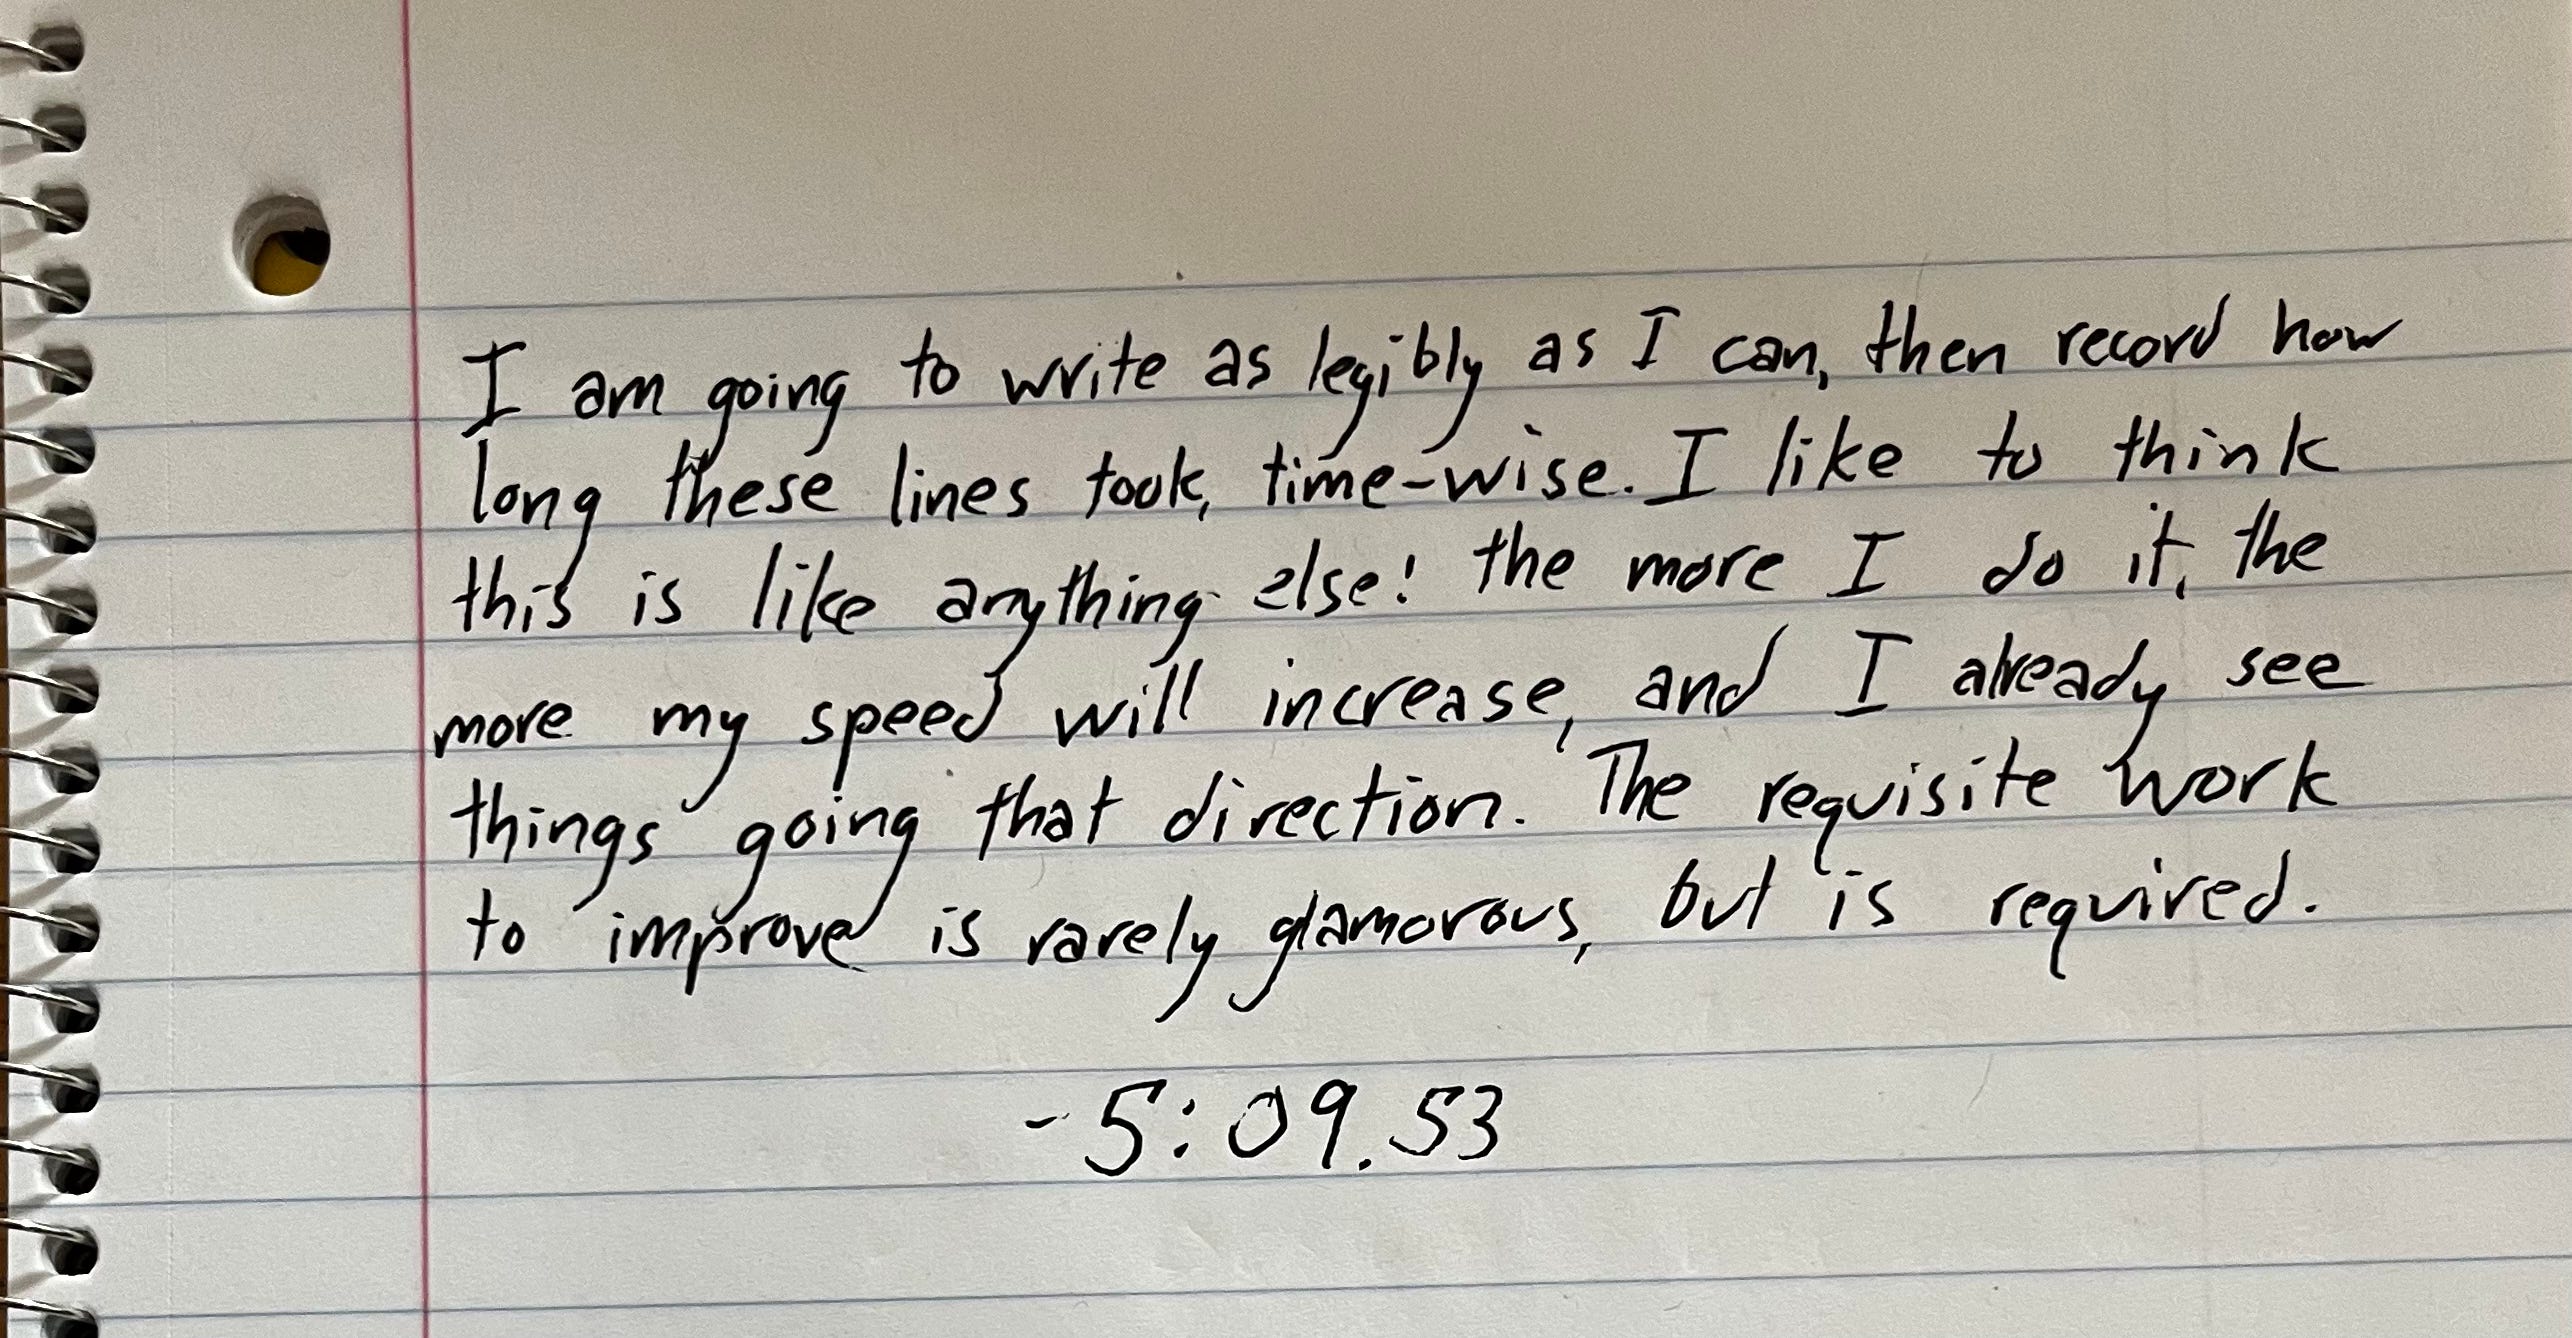 I am going to write as legibly as I can, then record how
long these lines took, time-wise. I like to think
this is like anything else! the more I do it, the
more my speed will increase, and I already see
things going that direction. The requisite work
to improve is rarely glamorous, but is required.
-5:09.53